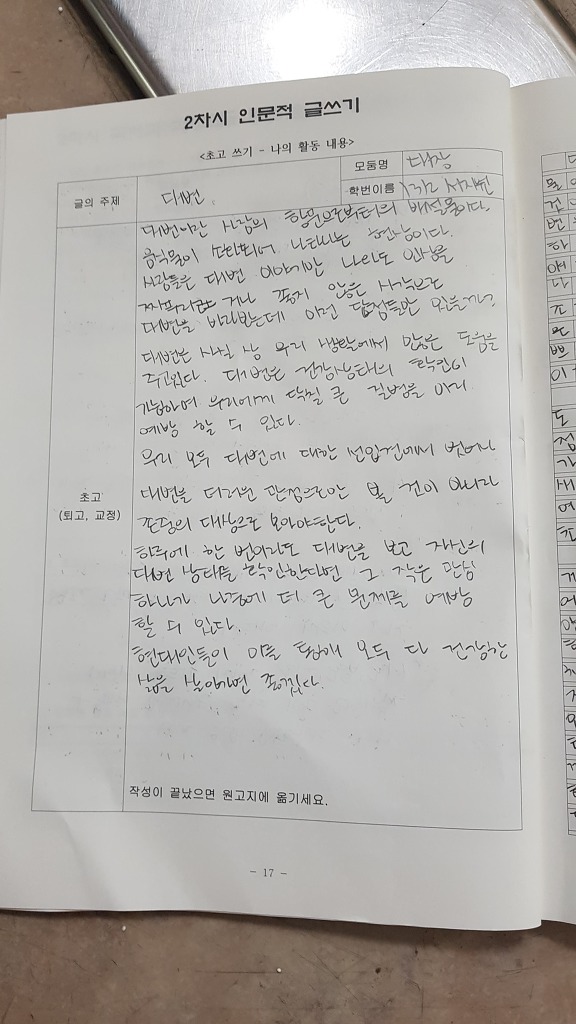 2차시 인문적 글쓰기
<초고 쓰기 - 나의 활동 내용>
글의 주제 대변 모둠명 대장
학번이름
대변이란 사람의 항문으로부터의 배설물이다.
음식물이 소화되어 나타나는 현상이다.
사람들은 대변 이야기만 나와도 인상을
찌푸리 거나 좋지 않은 시각으로
대변을 바라보는데 이런 단점들만 있을까?
대변은 사실 상 우리 생활에서 많은 도움을
주고있다. 대변은 건강상태의 확인이
가능하며 우리에게 닥칠 큰 질병을 미리
예방 할 수 있다.
우리 모두 대변에 대한 선입견에서 벗어나
대변을 더러운 관점으로만 볼 것이 아니라
관점의 대상으로 보아야한다.
하루에 한 번이라도 대변을 보고 자신의
대변 상태를 확인한다면 그 작은 관심
하나가 나중에 더 큰 문제를 예방
할 수 있다.
현대인들이 이를 통해 모두 다 건강한
삶을 살아가면 좋겠다.
초고
(퇴고, 교정)
작성이 끝났으면 원고지에 옮기세요.
- 17 -